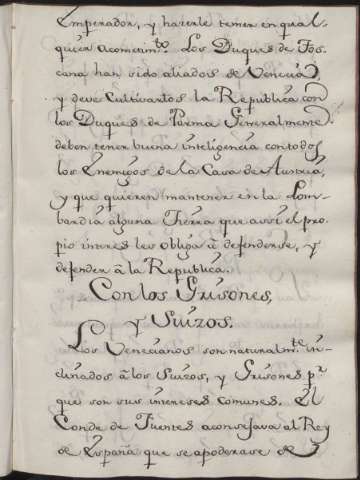 Emperador, y hazerle temer en qual-
quier acometim.to Los Duques de Tos-
cana han sido aliados de Venecia,
y deve Cultivarlos la Republica con
los Duques de Parma Generalmente
deben tener buena inteligencia con todos
los Enemigos de la Casa de Austria,
y que quieren mantener en la Lom-
bardia alguna Tierra que assi el pro-
pio interes les obliga à defenderse, y
defender à la Republica.
Con los Grisones,
y Suizos.
Los Venecianos son naturalm.te in-
clinados à los Suizos, y Grisones p.r
que son sus intereses comunes. El
Conde de Fuentes aconsejava al Rey
de España que se apoderase de